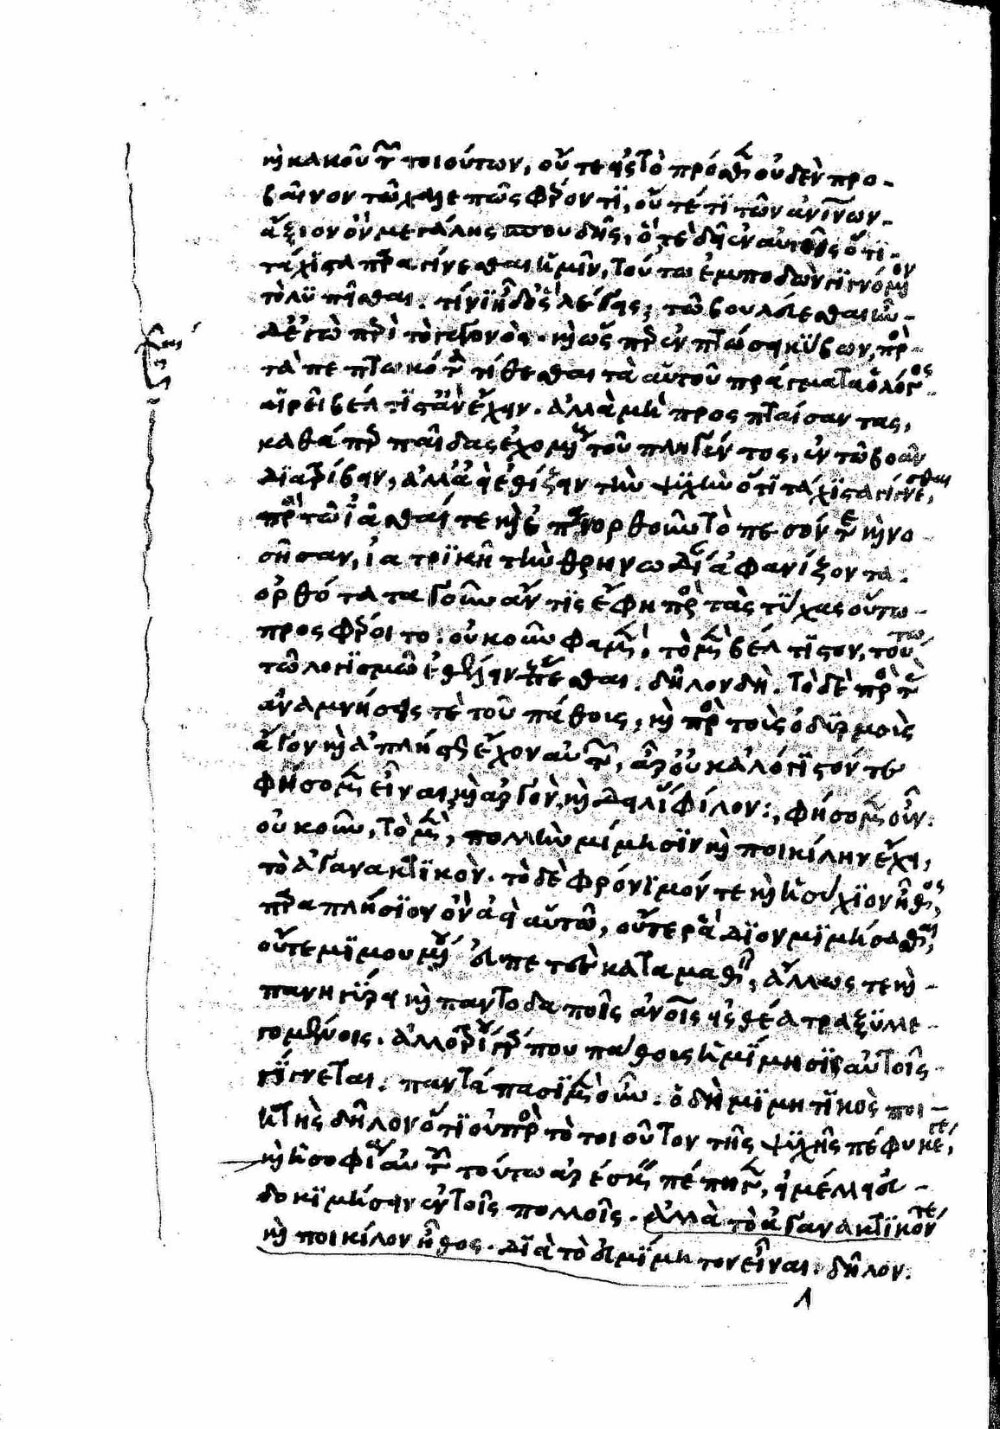 καὶ κακοῦ τῶν τοιούτων, οὔτε εἰς τὸ πρόσθεν οὐδὲν προ-
βαῖνον τῷ χαλεπῶς φέροντι, οὔτέ τι τῶν ἀνθρωπίνων
ἄξιον ὂν μεγάλης σπουδῆς, ὅ τε δεῖ ἐν αὐτοῖς ὅτι
τάχιστα παραγίνεσθαι ἡμῖν, τούτω ἐμποδὼν γιγνόμενον
τὸ λυπεῖσθαι. τίνι ἦ δ' ὃς λέγεις; τῷ βουλεύεσθαι ἦν
δ' ἐγὼ περὶ τὸ γεγονὸς. καὶ ὥσπερ ἐν πτώσει κύβων, πρὸς
τὰ πεπτωκότα τίθεσθαι τὰ αὑτοῦ πράγματα ὁ λόγος
αἱρεῖ βέλτιστ' ἂν ἔχειν. ἀλλὰ μὴ προσπταίσαντας,
καθάπερ παῖδας ἐχομένους τοῦ πληγέντος, ἐν τῷ βοᾶν
διατρίβειν, ἀλλ' ἀεὶ ἐθίζειν τὴν ψυχὴν ὅτι τάχιστα γίγνεσθαι,
πρὸς τῷ ἰᾶσθαί τε καὶ ἐπανορθοῦν τὸ πεσόν τε καὶ νο-
σῆσαν, ἰατρικῇ τὴν θρηνωδίαν ἀφανίζοντα.
ὀρθότατα γοῦν ἄν τις ἔφη πρὸς τὰς τύχας οὕτω
προσφέροιτο. οὐκοῦν φαμὲν, τὸ μὲν βέλτιστον, τούτω
τῷ λογισμῷ ἐθέλειν ἕπεσθαι. δῆλον δή. τὸ δὲ πρὸς τὰς
ἀναμνήσεις τε τοῦ πάθους, καὶ πρὸς τοὺς ὀδυρμοὺς
ἄγον καὶ ἀπλήστως ἔχον αὐτῶν, ἆρ' οὐκ ἀλόγιστόν τε
φήσομεν εἶναι καὶ ἀργὸν, καὶ δειλίας φίλον; φήσομεν οὖν.
οὐκοῦν, τὸ μὲν, πολλὴν μίμησιν καὶ ποικίλην ἔχει,
τὸ ἀγανακτικὸν. τὸ δὲ φρόνιμόν τε καὶ ἡσύχιον ἦθος,
παραπλήσιον ὂν ἀεὶ αὐτῷ, οὔτε ῥάδιον μιμήσασθαι,
οὔτε μιμουμένου εὐπετὲς καταμαθεῖν, ἄλλως τε καὶ
πανηγύρει καὶ παντοδαποῖς ἀνθρώποις εἰς θέατρα ξυλλε-
γομένοις. ἀλλοτρίου γάρ που πάθους ἡ μίμησις αὐτοῖς
γίγνεται. παντάπασι μὲν οὖν. ὁ δὴ μιμητικὸς ποι-
ητὴς δῆλον ὅτι οὐ πρὸς τὸ τοιοῦτον τῆς ψυχῆς πέφυκέ γε,
καὶ ἡ σοφία αὐτοῦ τούτω ἀρέσκειν πέπηγεν, εἰ μέλλει εὐ-
δοκιμήσειν ἐν τοῖς πολλοῖς. ἀλλὰ τὸ ἀγανακτικόν τε
καὶ ποικίλον ἦθος. διὰ τὸ εὐμίμητον εἶναι. δῆλον.